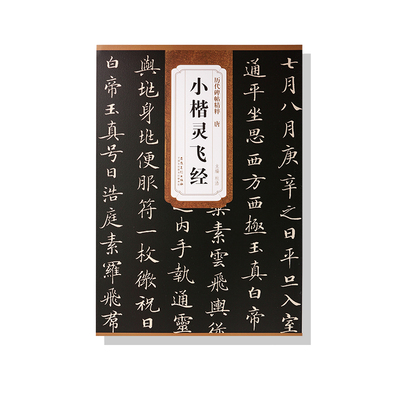 七月八月庚辛之日平旦入室
通平坐思西方西極玉真白帝
历代碑帖精粹 唐
小楷灵飞经
主编 杜浩
素雲飛輿從
之内手執通靈
與兆身兆便服符一枚微祝曰
白帝玉真号曰浩庭素羅飛羣